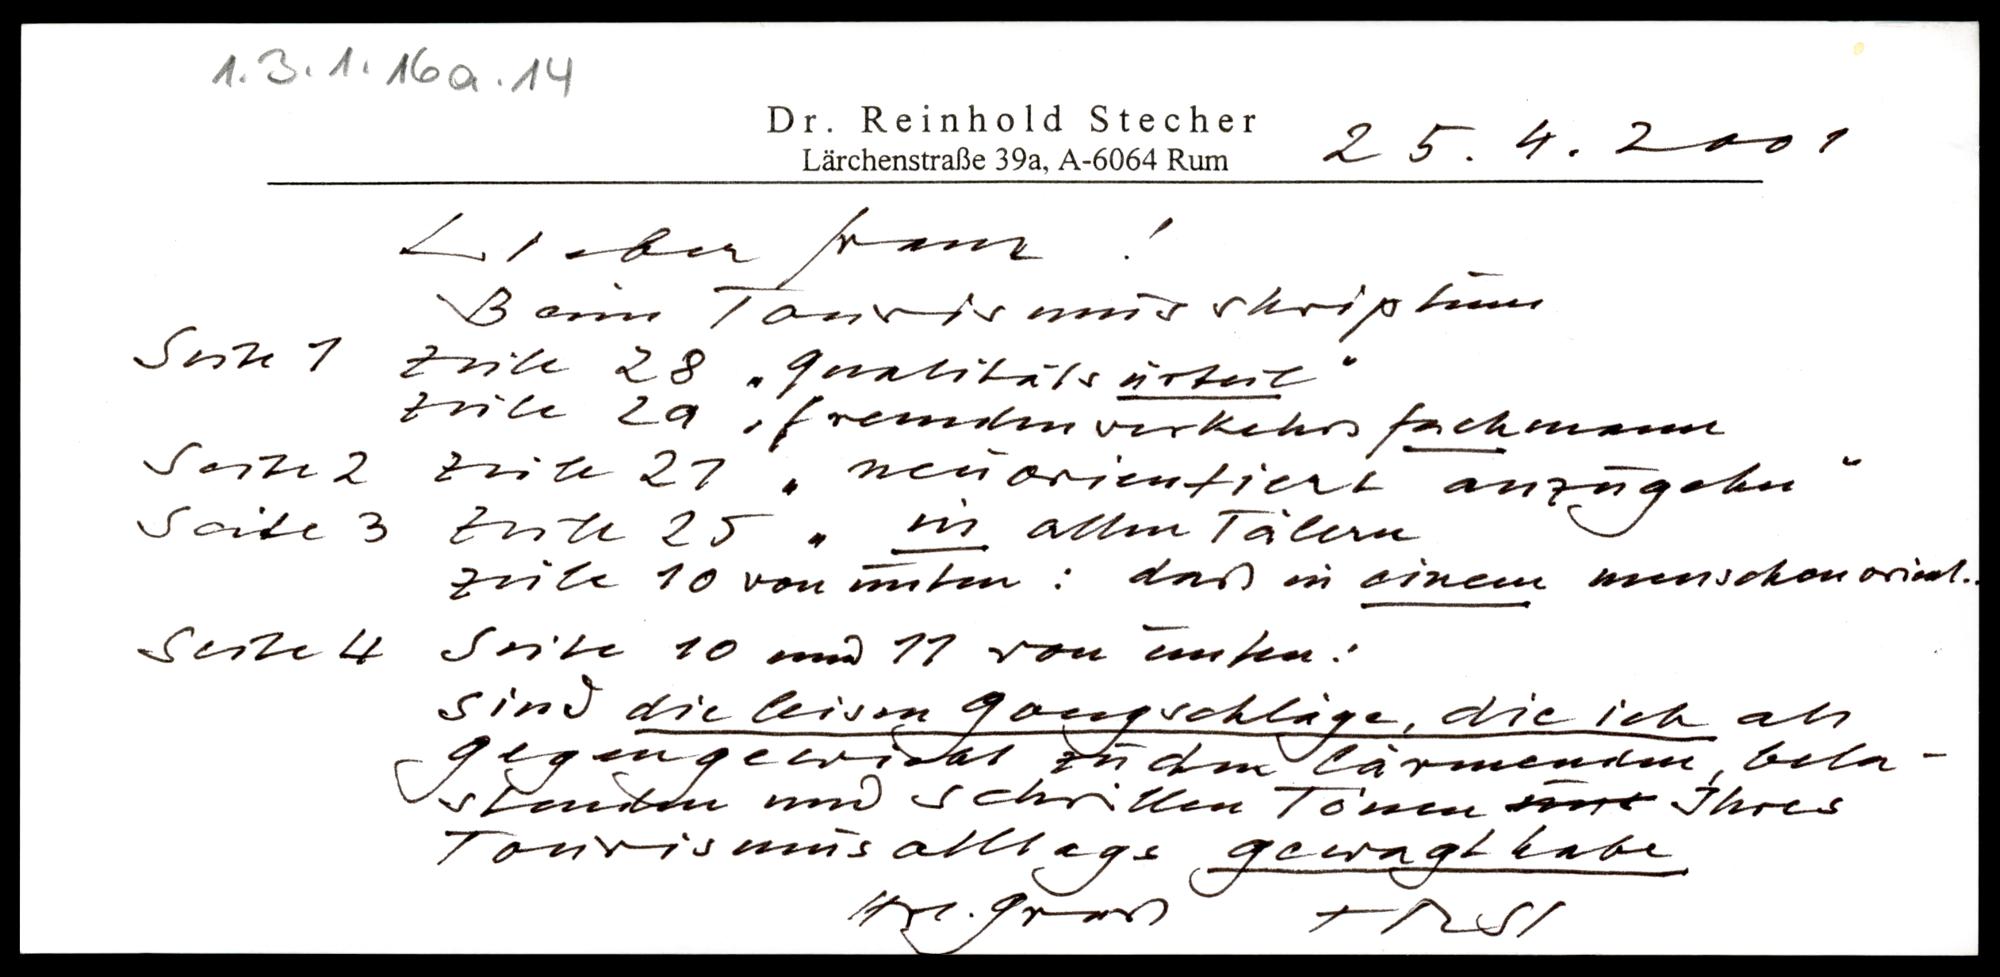 1.3.1.16a.14
Dr. Reinhold Stecher
Lärchenstraße 39a, A-6064 Rum
25.4.2001
Lieber Franz!
Beim Tourismusskriptum
Seite 1 Zeile 28 „Qualitätsurteil“
Zeile 29 „Fremdenverkehrsfachmann
Seite 2 Zeile 21 „neuorientiert anzugehen“
Seite 3 Zeile 25 „in allen Tälern
Zeile 10 von unten: daß in einem menschenorient..
Seite 4 Seite 10 und 11 von unten:
sind die leisen Gongschläge, die ich als
Gegengewicht zu den lärmenden, bela-
stenden und schrillen Tönen Ihres
Tourismusalltags gewagt habe
Hzl. Gruß + RSt